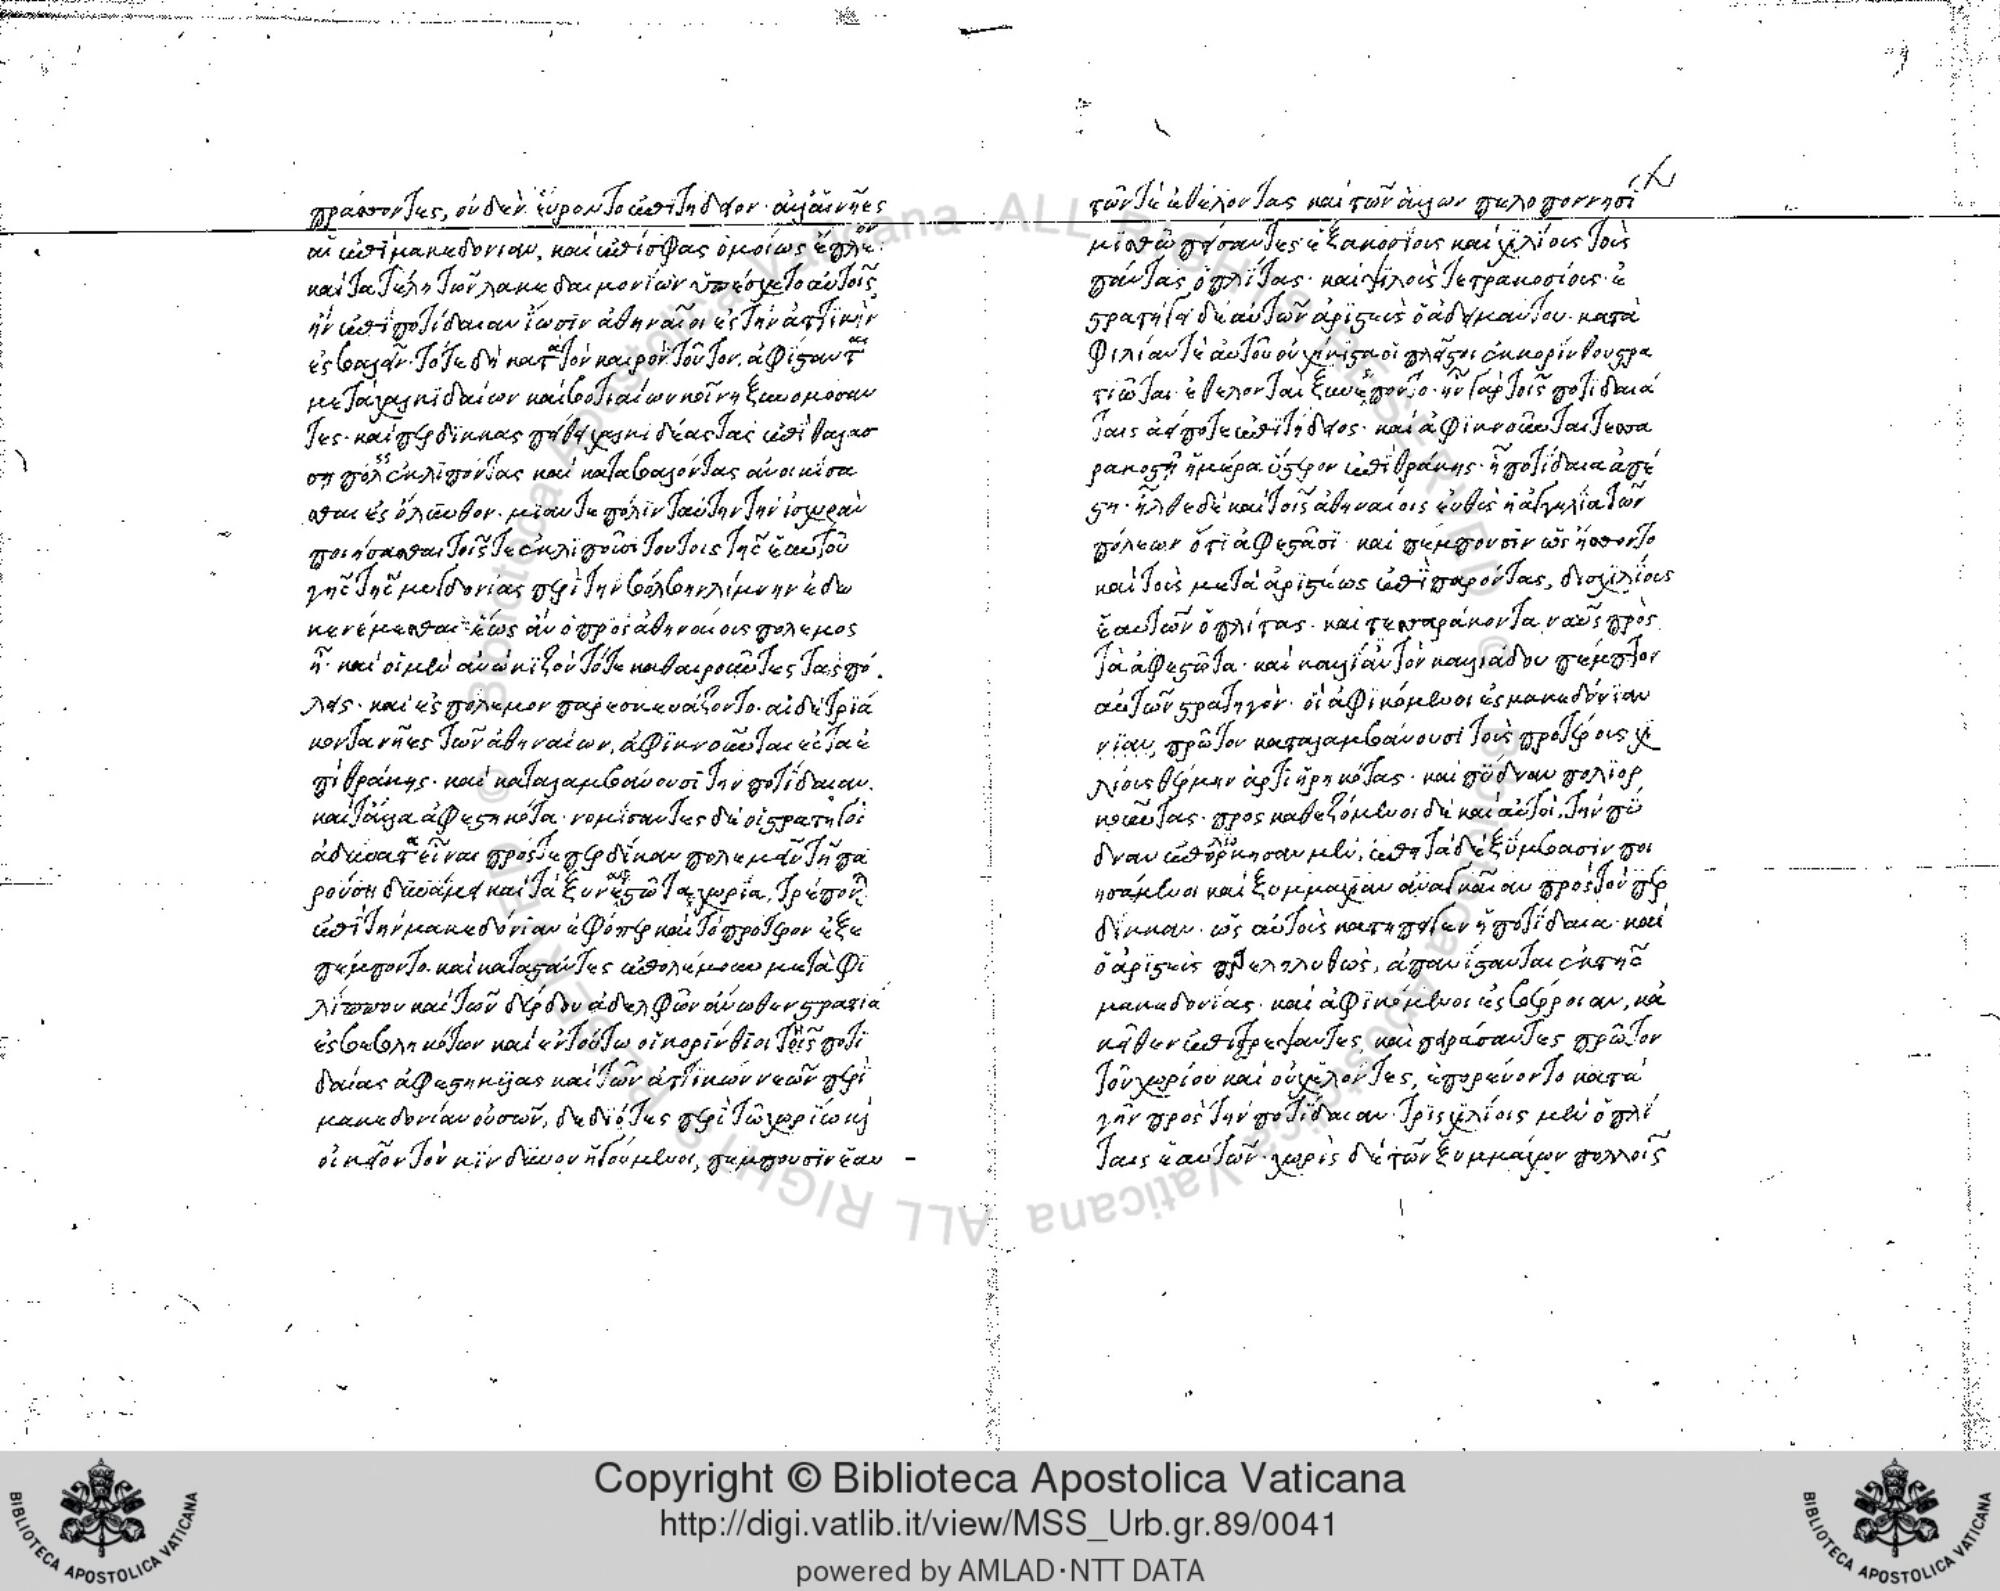 πράσσοντες, οὐδὲν εὕροντο ἐπιτήδειον· ἀλλ' αἱ νῆες
αἱ ἐπὶ μακεδονίαν, καὶ ἐπὶ σφᾶς ὁμοίως ἔπλεον·
καὶ τὰ τέλη τῶν λακεδαιμονίων ὑπέσχετο αὐτοῖς
ἢν ἐπὶ ποτίδαιαν ἴωσιν ἀθηναῖοι ἐς τὴν ἀττικὴν
ἐσβαλεῖν· τότε δὴ κατὰ τὸν καιρὸν τοῦτον, ἀφίστανται
μετὰ χαλκιδαίων καὶ βοττιαίων κοινῇ ξυνομόσαν
τες· καὶ περδίκκας πείθει χαλκιδέας τὰς ἐπὶ θαλάσ
σῃ πόλεις ἐκλιπόντας καὶ καταβαλόντας ἀνοικίσα
σθαι ἐς ὄλυνθον· μίαν τε πόλιν ταύτην τὴν ἰσχυρὰν
ποιήσασθαι τοῖς τε ἐκλιποῦσι τούτοις τῆς ἑαυτοῦ
γῆς τῆς μυγδονίας περὶ τὴν βόλβην λίμνην ἔδω
κε νέμεσθαι ἕως ἂν ὁ πρὸς ἀθηναίους πόλεμος
ᾖ· καὶ οἱ μὲν ἀνῳκίζοντό τε καθαιροῦντες τὰς πό
λεις· καὶ ἐς πόλεμον παρεσκευάζοντο· αἱ δὲ τριά
κοντα νῆες τῶν ἀθηναίων, ἀφικνοῦνται ἐς τὰ ἐ
πὶ θράκης· καὶ καταλαμβάνουσι τὴν ποτίδαιαν
καὶ τἆλλα ἀφεστηκότα· νομίσαντες δὲ οἱ στρατηγοὶ
ἀδύνατα εἶναι πρός τε περδίκκαν πολεμεῖν τῇ πα
ρούσῃ δυνάμει καὶ τὰ ξυναφεστῶτα χωρία, τρέπονται
ἐπὶ τὴν μακεδονίαν ἐφ' ὅπερ καὶ τὸ πρότερον ἐξε
πέμποντο· καὶ καταστάντες ἐπολέμουν μετὰ φι
λίππου καὶ τῶν δέρδου ἀδελφῶν ἄνωθεν στρατιᾷ
ἐσβεβληκότων καὶ ἐν τούτῳ οἱ κορίνθιοι τῆς ποτι
δαίας ἀφεστηκυίας καὶ τῶν ἀττικῶν νεῶν περὶ
μακεδονίαν οὐσῶν, δεδιότες περὶ τῷ χωρίῳ καὶ
οἰκεῖον τὸν κίνδυνον ἡγούμενοι, πέμπουσιν ἑαυ
τῶν τε ἐθέλοντας καὶ τῶν ἄλλων πελοποννησί
μισθῷ πείσαντες ἑξακοσίους καὶ χιλίους τοὺς
πάντας ὁπλίτας· καὶ ψιλοὺς τετρακοσίους· ἐ
στρατήγει δὲ αὐτῶν ἀριστεὺς ὁ ἀδειμάντου· κατὰ
φιλίαν τε αὐτοῦ οὐχ ἥκιστα οἱ πλεῖστοι ἐκ κορίνθου στρα
τιῶται ἐθελονταὶ ξυνέσποντο· ἦν γὰρ τοῖς ποτιδαιά
ταις ἀεί ποτε ἐπιτήδειος· καὶ ἀφικνοῦνται τεσσα
ρακοστῇ ἡμέρᾳ ὕστερον ἐπὶ θράκης· ἢ ποτίδαια ἀπέ
στη· ἦλθε δὲ καὶ τοῖς ἀθηναίοις εὐθὺς ἡ ἀγγελία τῶν
πόλεων ὅτι ἀφεστᾶσι· καὶ πέμπουσιν ὡς ᾔσθοντο
καὶ τοὺς μετὰ ἀριστέως ἐπιπαρόντας, δισχιλίους
ἑαυτῶν ὁπλίτας· καὶ τεσσαράκοντα ναῦς πρὸς
τὰ ἀφεστῶτα· καὶ καλλίαν τὸν καλλιάδου πέμπτον
αὐτῶν στρατηγόν· οἳ ἀφικόμενοι ἐς μακεδονίαν
νίαν, πρῶτον καταλαμβάνουσι τοὺς προτέρους χι
λίους θέρμην ἄρτι ᾑρηκότας· καὶ πύδναν πολιορ
κοῦντας· προσκαθεζόμενοι δὲ καὶ αὐτοὶ, τὴν πύ
δναν ἐπολιόρκησαν μέν, ἔπειτα δὲ ξύμβασιν ποι
ησάμενοι καὶ ξυμμαχίαν ἀναγκαίαν πρὸς τὸν περ
δίκκαν· ὡς αὐτοὺς κατήπειγεν ἡ ποτίδαια· καὶ
ὁ ἀριστεὺς παρεληλυθὼς, ἀπανίστανται ἐκ τῆς
μακεδονίας· καὶ ἀφικόμενοι ἐς βέρροιαν, κἀ
κεῖθεν ἐπιστρέψαντες, καὶ πειράσαντες πρῶτον
τοῦ χωρίου καὶ οὐχ ἑλόντες, ἐπορεύοντο κατὰ
γῆν πρὸς τὴν ποτίδαιαν· τρισχιλίοις μὲν ὁπλί
ταις ἑαυτῶν· χωρὶς δὲ τῶν ξυμμάχων πολλοῖς
Copyright © Biblioteca Apostolica Vaticana
http://digi.vatlib.it/view/MSS_Urb.gr.89/0041
powered by AMLAD·NTT DATA
BIBLIOTECA APOSTOLICA VATICANA
BIBLIOTECA APOSTOLICA VATICANA